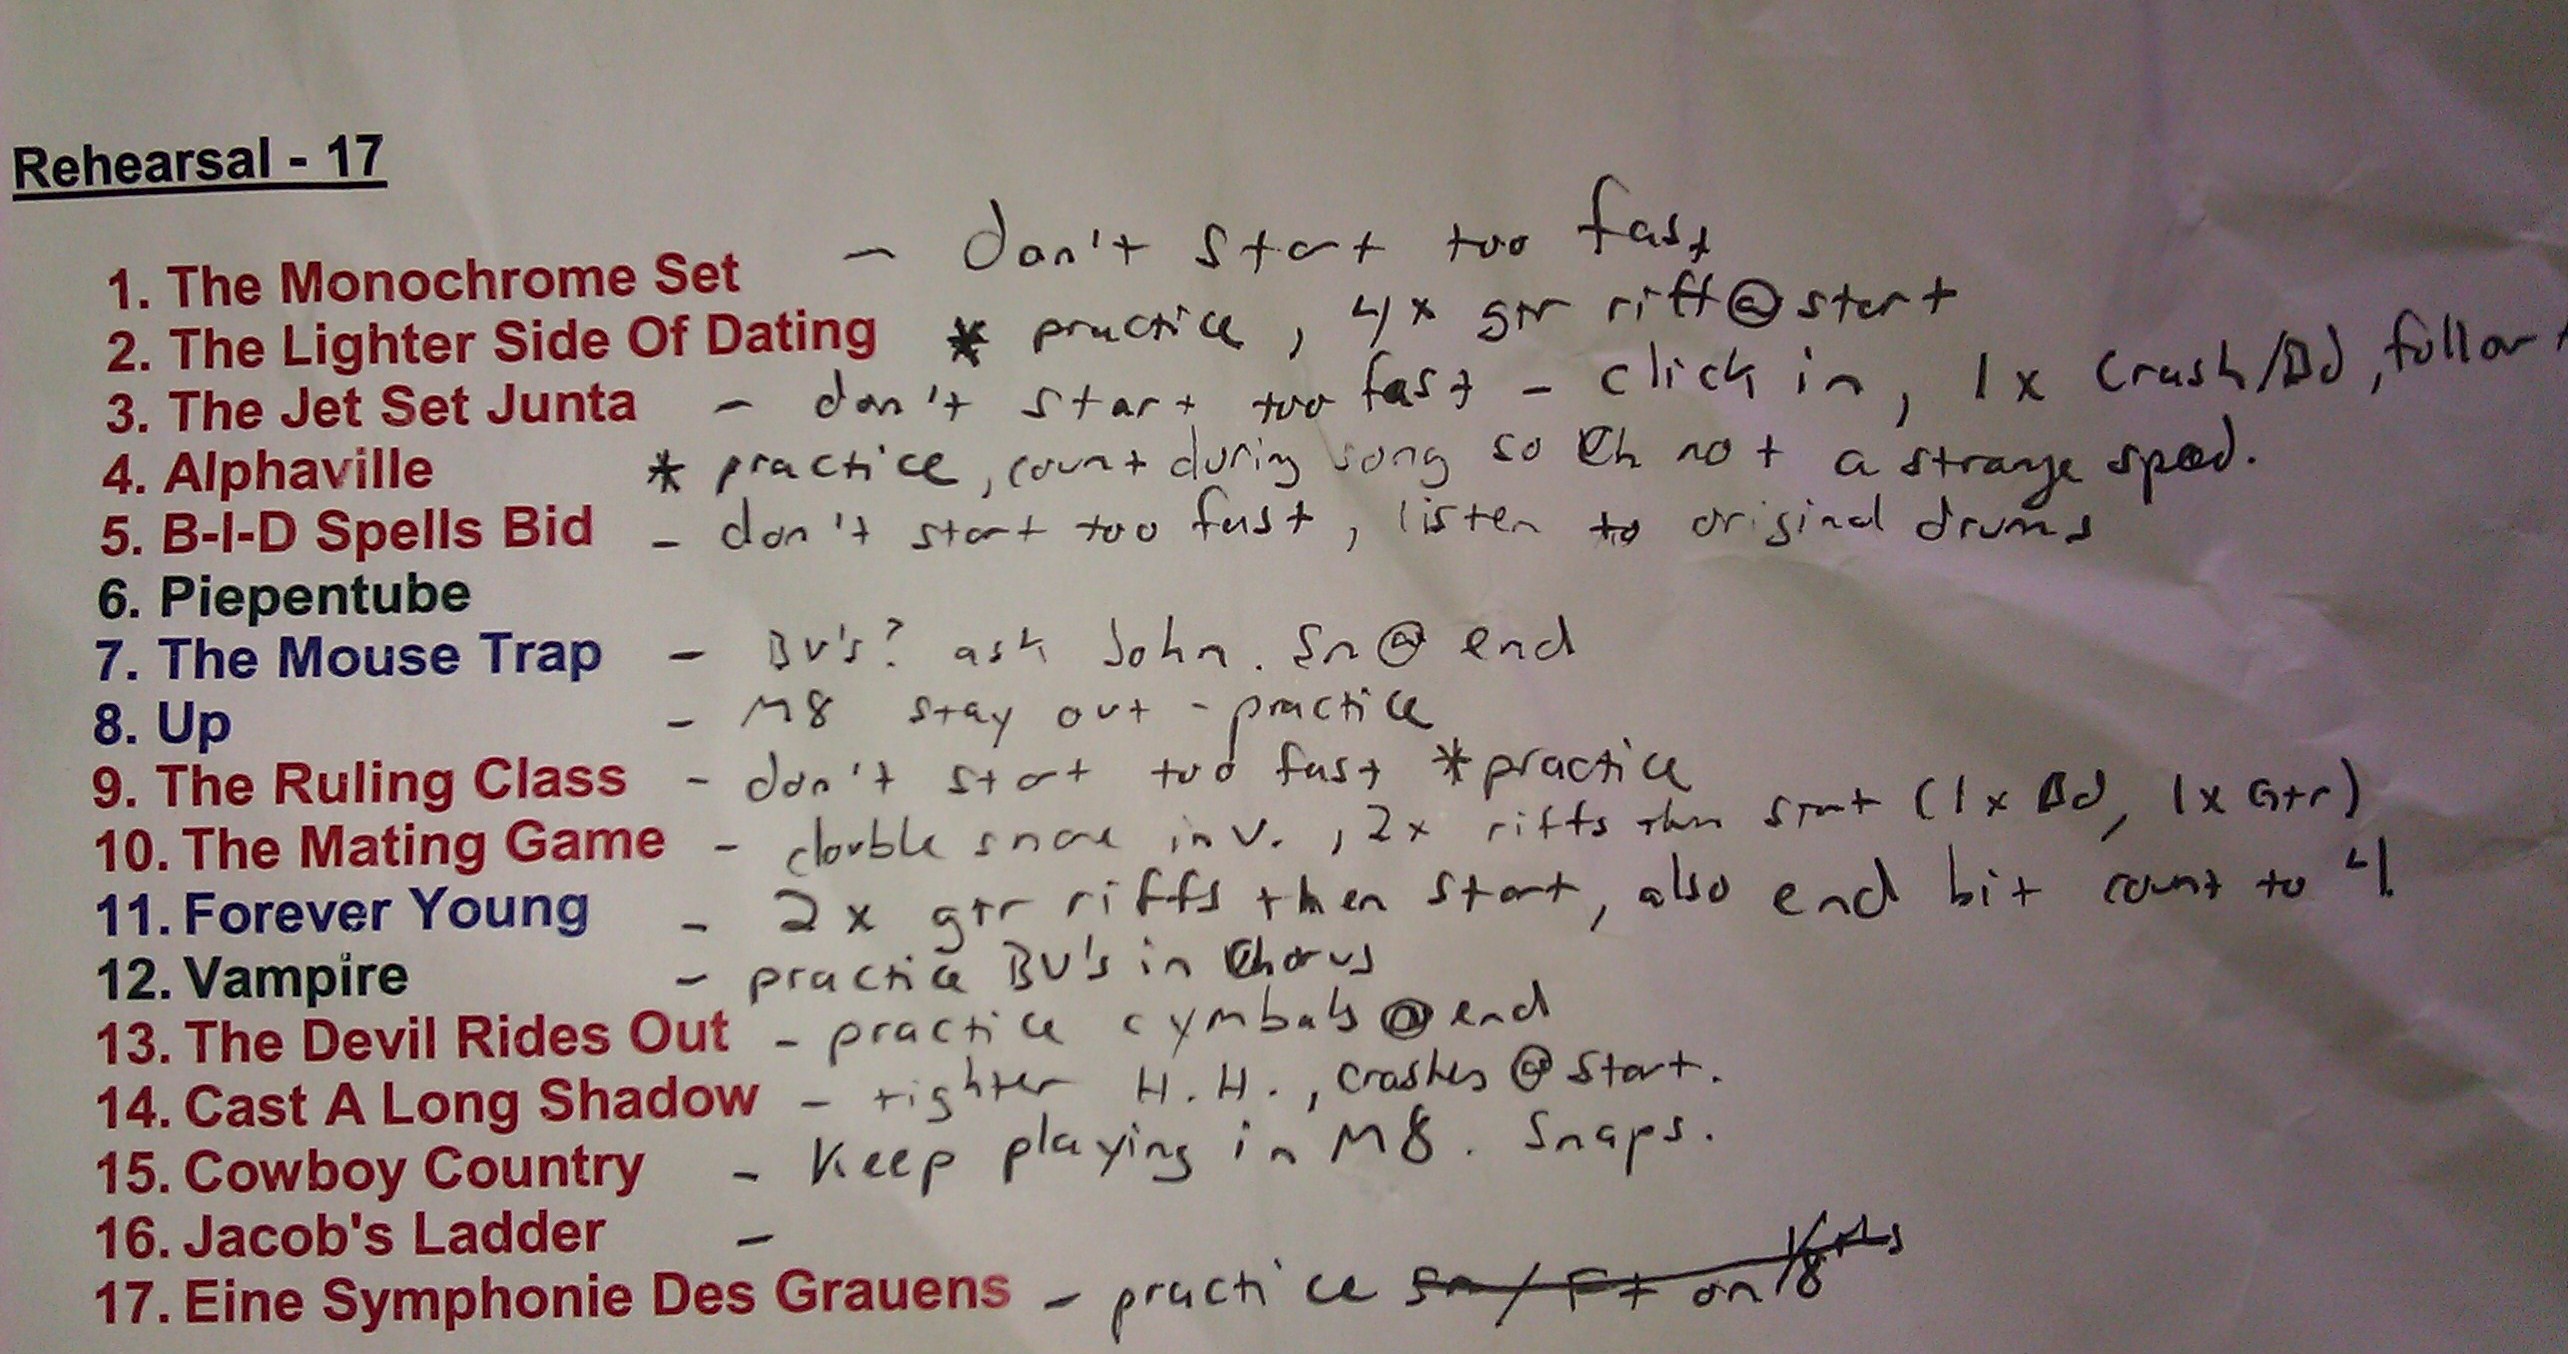 Rehearsal - 17
1. The Monochrome Set - don't start too fast
2. The Lighter Side Of Dating * practice, 4x gtr riff @ start
3. The Jet Set Junta - don't start too fast - click in, 1x Crash/Bd, follow
4. Alphaville * practice, count during song so Ch not a strange speed.
5. B-I-D Spells Bid - don't start too fast, listen to original drums
6. Piepentube
7. The Mouse Trap - BV's? ask John. Sn @ end
8. Up - M8 stay out - practice
9. The Ruling Class - don't start too fast * practice
10. The Mating Game - double snare in V., 2x riffs then start (1x Bd, 1x Gtr)
11. Forever Young - 2x gtr riffs then start, also end bit count to 4
12. Vampire - practice BV's in Chorus
13. The Devil Rides Out - practice cymbals @ end
14. Cast A Long Shadow - tighter H.H., crashes @ start.
15. Cowboy Country - Keep playing in M8. Snaps.
16. Jacob's Ladder -
17. Eine Symphonie Des Grauens - practice Sn/Ft on 1/8